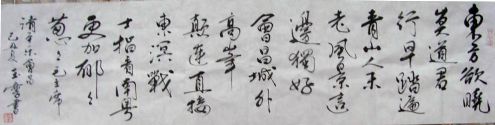 東方欲曉
莫道君
行早踏遍
青山人未
老風景這
邊獨好
會昌城外
高峰
顛連直接
東溟戰
士指看南粵
更加郁々
蔥々毛主席
清平乐會昌